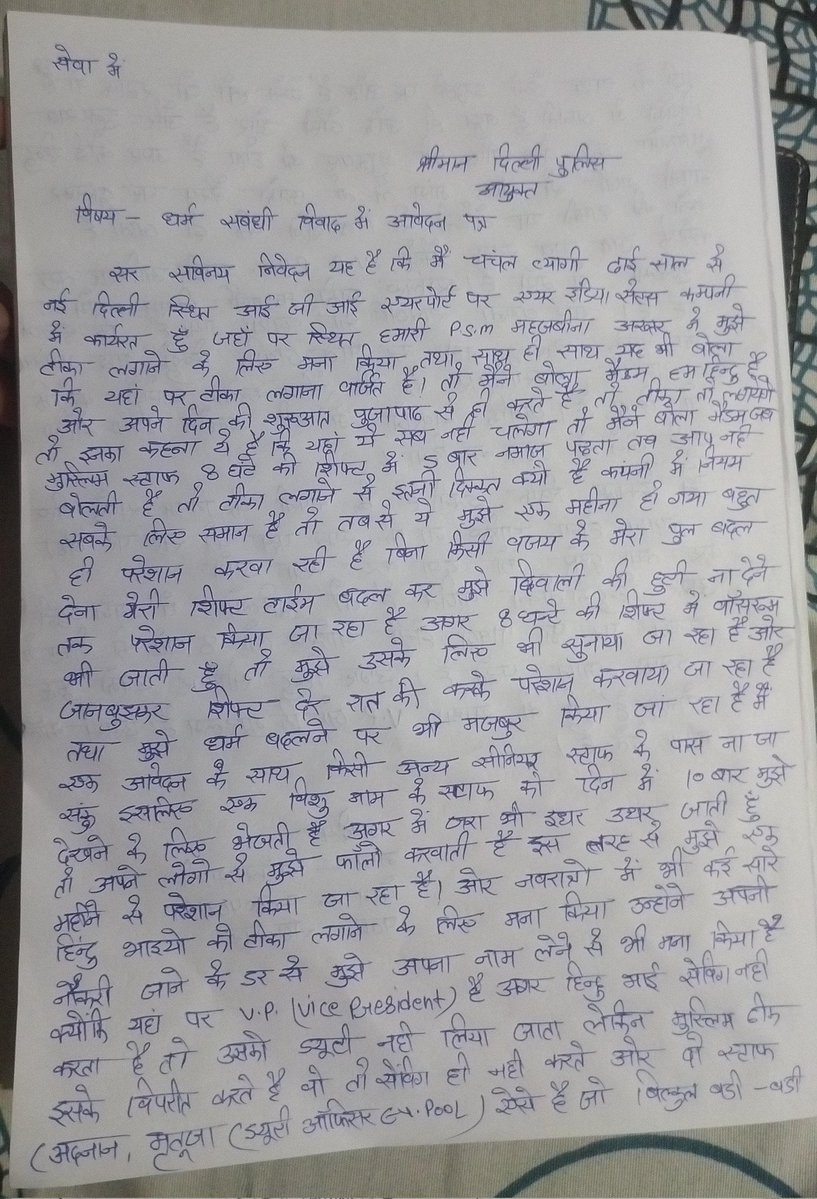 सेवा में
श्रीमान दिल्ली पुलिस
आयुक्त
विषय - धर्म सबंधी विवाद में आवेदन पत्र
सर सविनय निवेदन यह है कि मैं चचंल त्यागी ढाई साल से
नई दिल्ली स्थित आई जी आई एयरपोर्ट पर एयर इंडिया सेल्स कम्पनी
में कार्यरत हूँ जहाँ पर स्थित हमारी P.S.M महजबीना अख्तर ने मुझे
टीका लगाने के लिए मना किया तथा साथ ही साथ यह भी बोला
कि यहां पर टीका लगाना वर्जित है। तो मैंने बोला मैडम हम हिन्दु है
और अपने दिन की शुरुआत पुजापाठ से ही करते है तो टीका तो लगायेगे
तो इनका कहना ये है कि यहां ये सब नही चलेगा तो मैंने बोला मैडम जब
मुस्लिम स्टाफ 8 घंटे की शिफ्ट में 5 बार नमाज पढता तब आप नही
बोलती है तो टीका लगाने से इतनी दिक्कत क्यो है कंपनी में नियम
सबके लिए समान है तो तबसे ये मुझे एक महीना हो गया बहुत
ही परेशान करवा रही है बिना किसी वजय के मेरा पुल बदल
देना मेरी शिफ्ट टाईम बदल कर मुझे दिवाली की छुटी ना देने
तक परेशान किया जा रहा है अगर 8 घन्टे की शिफ्ट में वॉसरूम
भी जाती हूँ तो मुझे उसके लिए भी सुनाया जा रहा है और
जानबुझकर शिफ्ट देर रात की करके परेशान करवाया जा रहा है
तथा मुझे धर्म बदलने पर भी मजबुर किया जा रहा है मैं
एक आवेदन के साथ किसी अन्य सीनियर स्टाफ के पास ना जा
सकुं इसलिए एक विशु नाम के स्टाफ को दिन में 10 बार मुझे
देखने के लिए भेजती है अगर में जरा भी इधर उधर जाती हूँ
तो अपने लोगो से मुझे फॉलो करवाती है इस तरह से मुझे एक
महीने से परेशान किया जा रहा है। और नवरात्रो में भी कई सारे
हिन्दु भाइयो को टीका लगाने के लिए मना किया उन्होने अपनी
नौकरी जाने के डर से मुझे अपना नाम लेने से भी मना किया है
क्योंकि यहां पर V.P. (Vice President) है अगर हिन्दु भाई सेविंग नही
करता है तो उसको ड्यूटी नही लिया जाता लेकिन मुस्लिम टीम
इसके विपरीत करते है वो तो सेविंग ही नही करते और वो स्टाफ
(अदनान, मृतूजा (ड्यूटी ऑफिसर POOL) ऐसे है जो बिल्कुल बडी - बडी